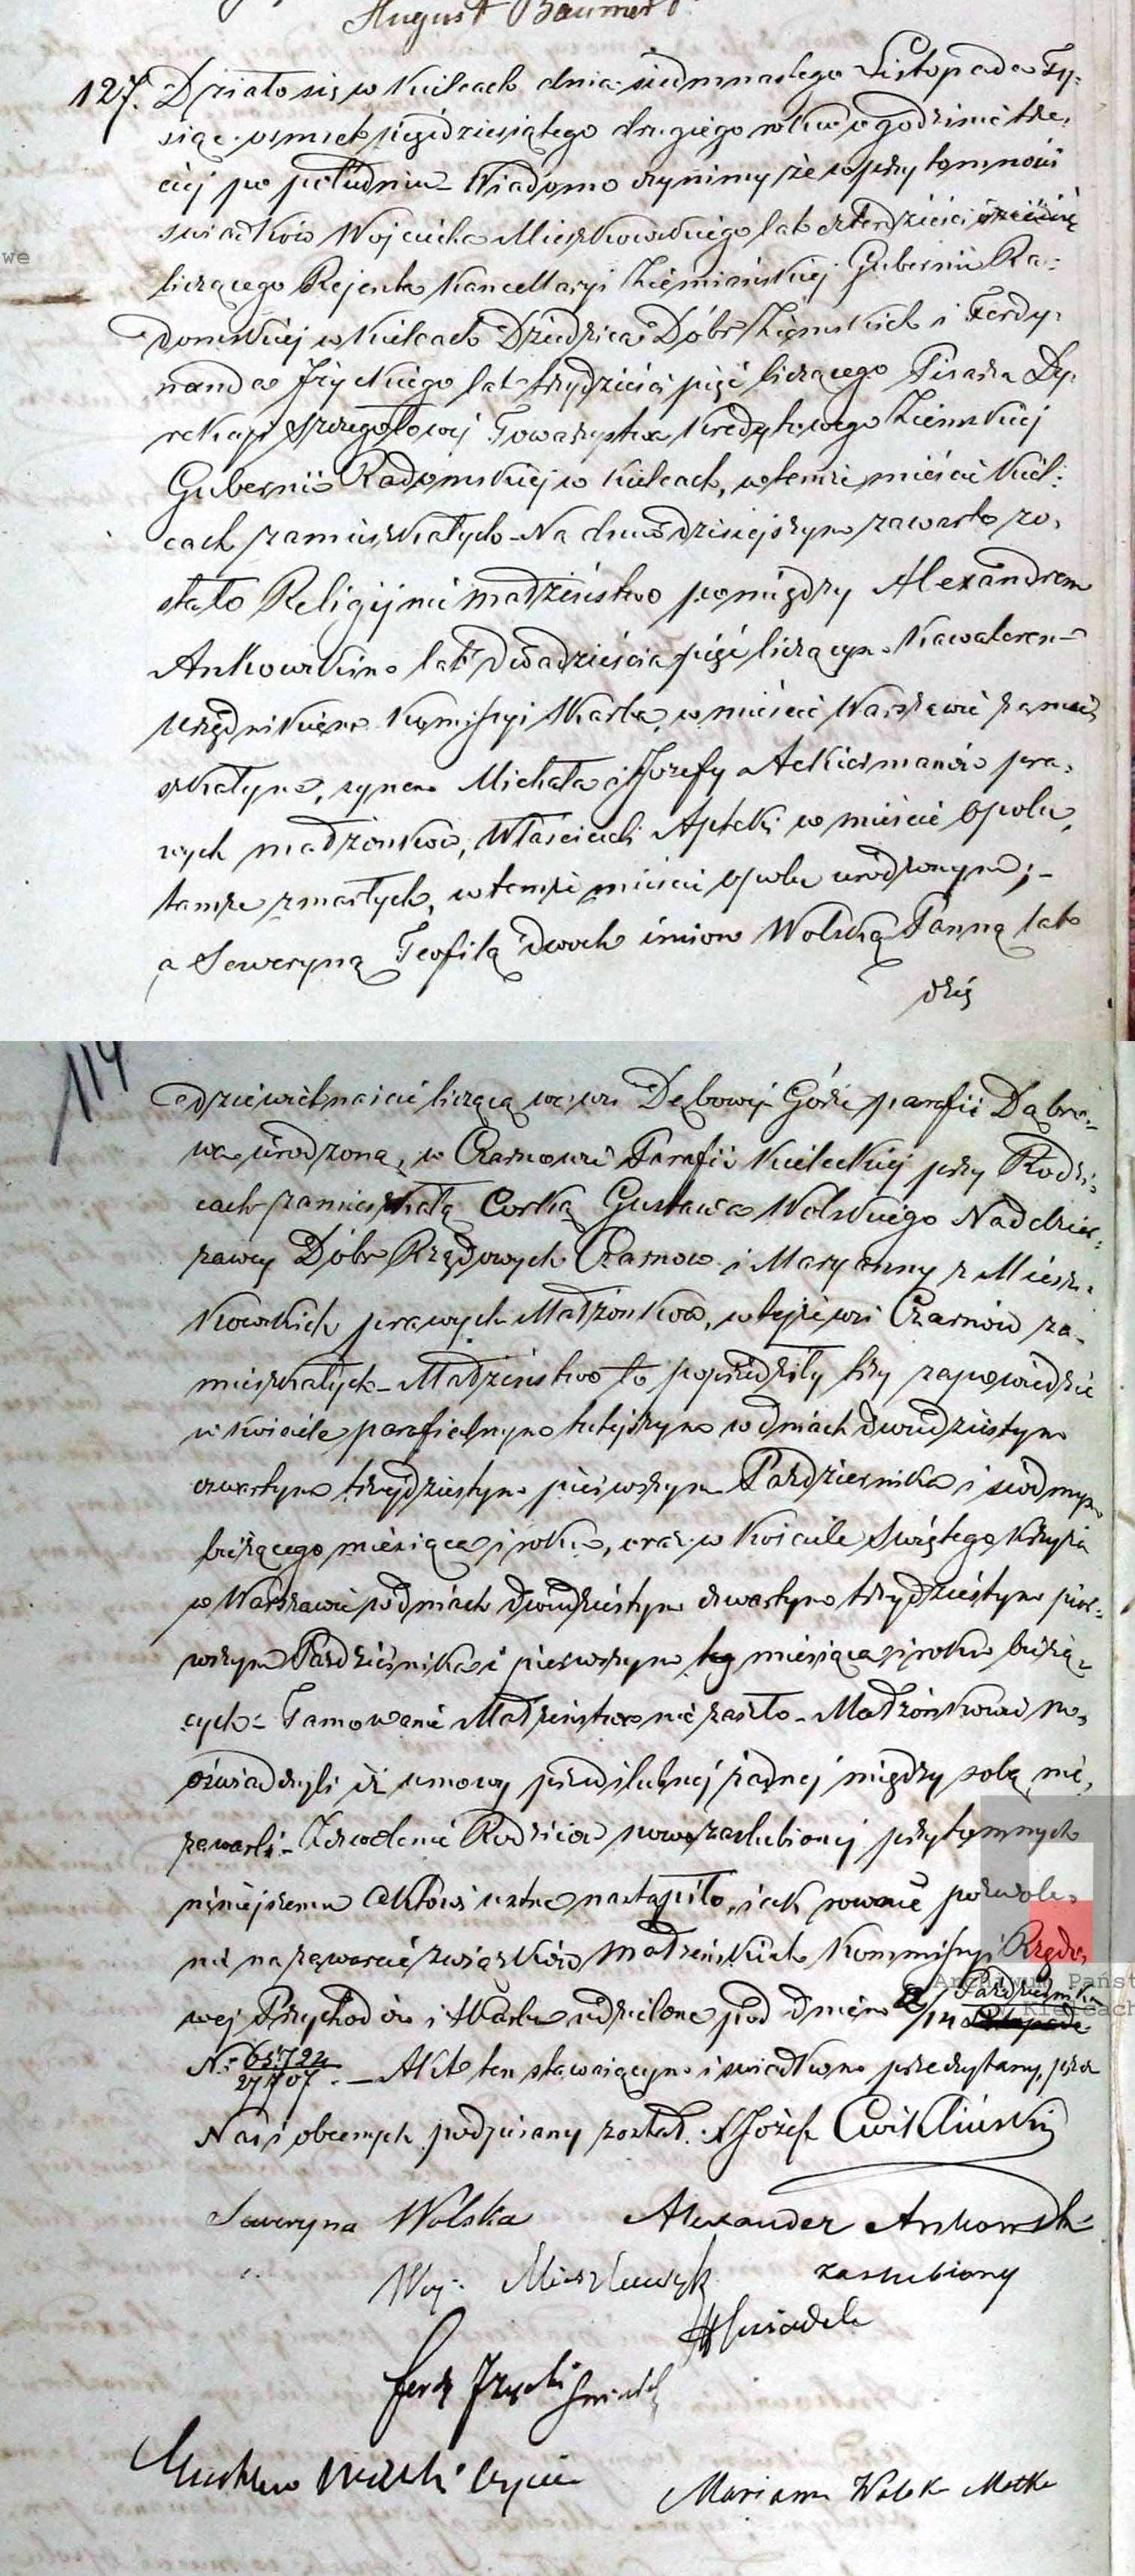 August Baumert
127. Działo się w Kielcach dnia siedmnastego Listopada Ty-
siąc osmset pięździesiątego drugiego roku o godzinie trze-
ciej po południu - Wiadomo czynimy że w przytomności
swiadków Wojciecha Mieszkowskiego lat czterdzieści
liczącego Rejenta Kancellaryi Ziemiańskiej Gubernii Ra-
domskiej w Kielcach Dziedzica Dóbr Ziemskich i Ferdy-
nanda Jżyckiego lat trzydzieści pięć liczącego Pisarza Dy-
rekcyi Szczegółowej Towarzystwa Kredytowego Ziemskiej
Gubernii Radomskiej w Kielcach, w temże mieście Kiel-
cach zamieszkałych - Na dniu dzisiejszym zawarte zo-
stało Religijne małżeństwo pomiędzy Alexandrem
Ankowskim lat dwadzieścia pięć liczącym Kawalerem -
Urzędnikiem Kommissyi Skarbu, w mieście Warszawie zamie-
szkałym, synem Michała i Jozefy z Ackiermanów pra-
wych małżonków, Właścicieli Apteki w mieście Opolu,
tamże zmarłych, w temże mieście Opolu urodzonym; -
a Seweryną Teofilą dwoch imion Wolską Panną lat
dzie
114
dziewietnaście liczącą we wsi Dębowej Górze parafii Dąbro-
wa urodzoną, w Czarnowie Parafii Kieleckiej przy Rodzi-
cach zamieszkałą Corką Gustawa Wolskiego Naddzier-
żawcy Dóbr Rządowych Czarnow i Maryanny z Miesz-
kowskich prawych Małżonków, w tejże wsi Czarnów za-
mieszkałych - Małżeństwo to poprzedziły trzy zapowiedzie
w kościele parafialnym tutejszym w dniach dwudziestym
czwartym trzydziestym pierwszym Pazdziernika i siódmym
bieżącego miesiąca i roku, oraz w Kościele Swiętego Krzyża
w Warszawie w dniach dwudziestym czwartym trzydziestym pier-
wszym Pazdziernika i pierwszym miesiąca i roku bieżą-
cych - Tamowanie Małżeństwa nie zaszło - Małżonkowie no-
oświadczyli iż umowy przedślubnej żadnej między sobą nie
zawarli - Zezwolenie Rodziców nowozaslubionej przytomnych
niniejszemu aktowi ustne nastąpiło, jak rownie pozwole-
nie na zawarcie związków małżeńskich Kommissyi Rządo-
wej Przychodów i Skarbu udzielone pod dniem 2/14 Pazdziernika
N. 65722/27707. - Akt ten stawaiącym i swiadkom przeczytany, przez
Nas i obecnych podpisany został. X Józef Cwikliński
Seweryna Wolska Alexander Ankowski
zaslubiony
Woj: Mieszkowski
Swiadek
Ferd Jżycki swiadek
Gustaw Wolski Oyciec
Marianna Wolska Matka
Archiwum Państ
w Kielcach
we